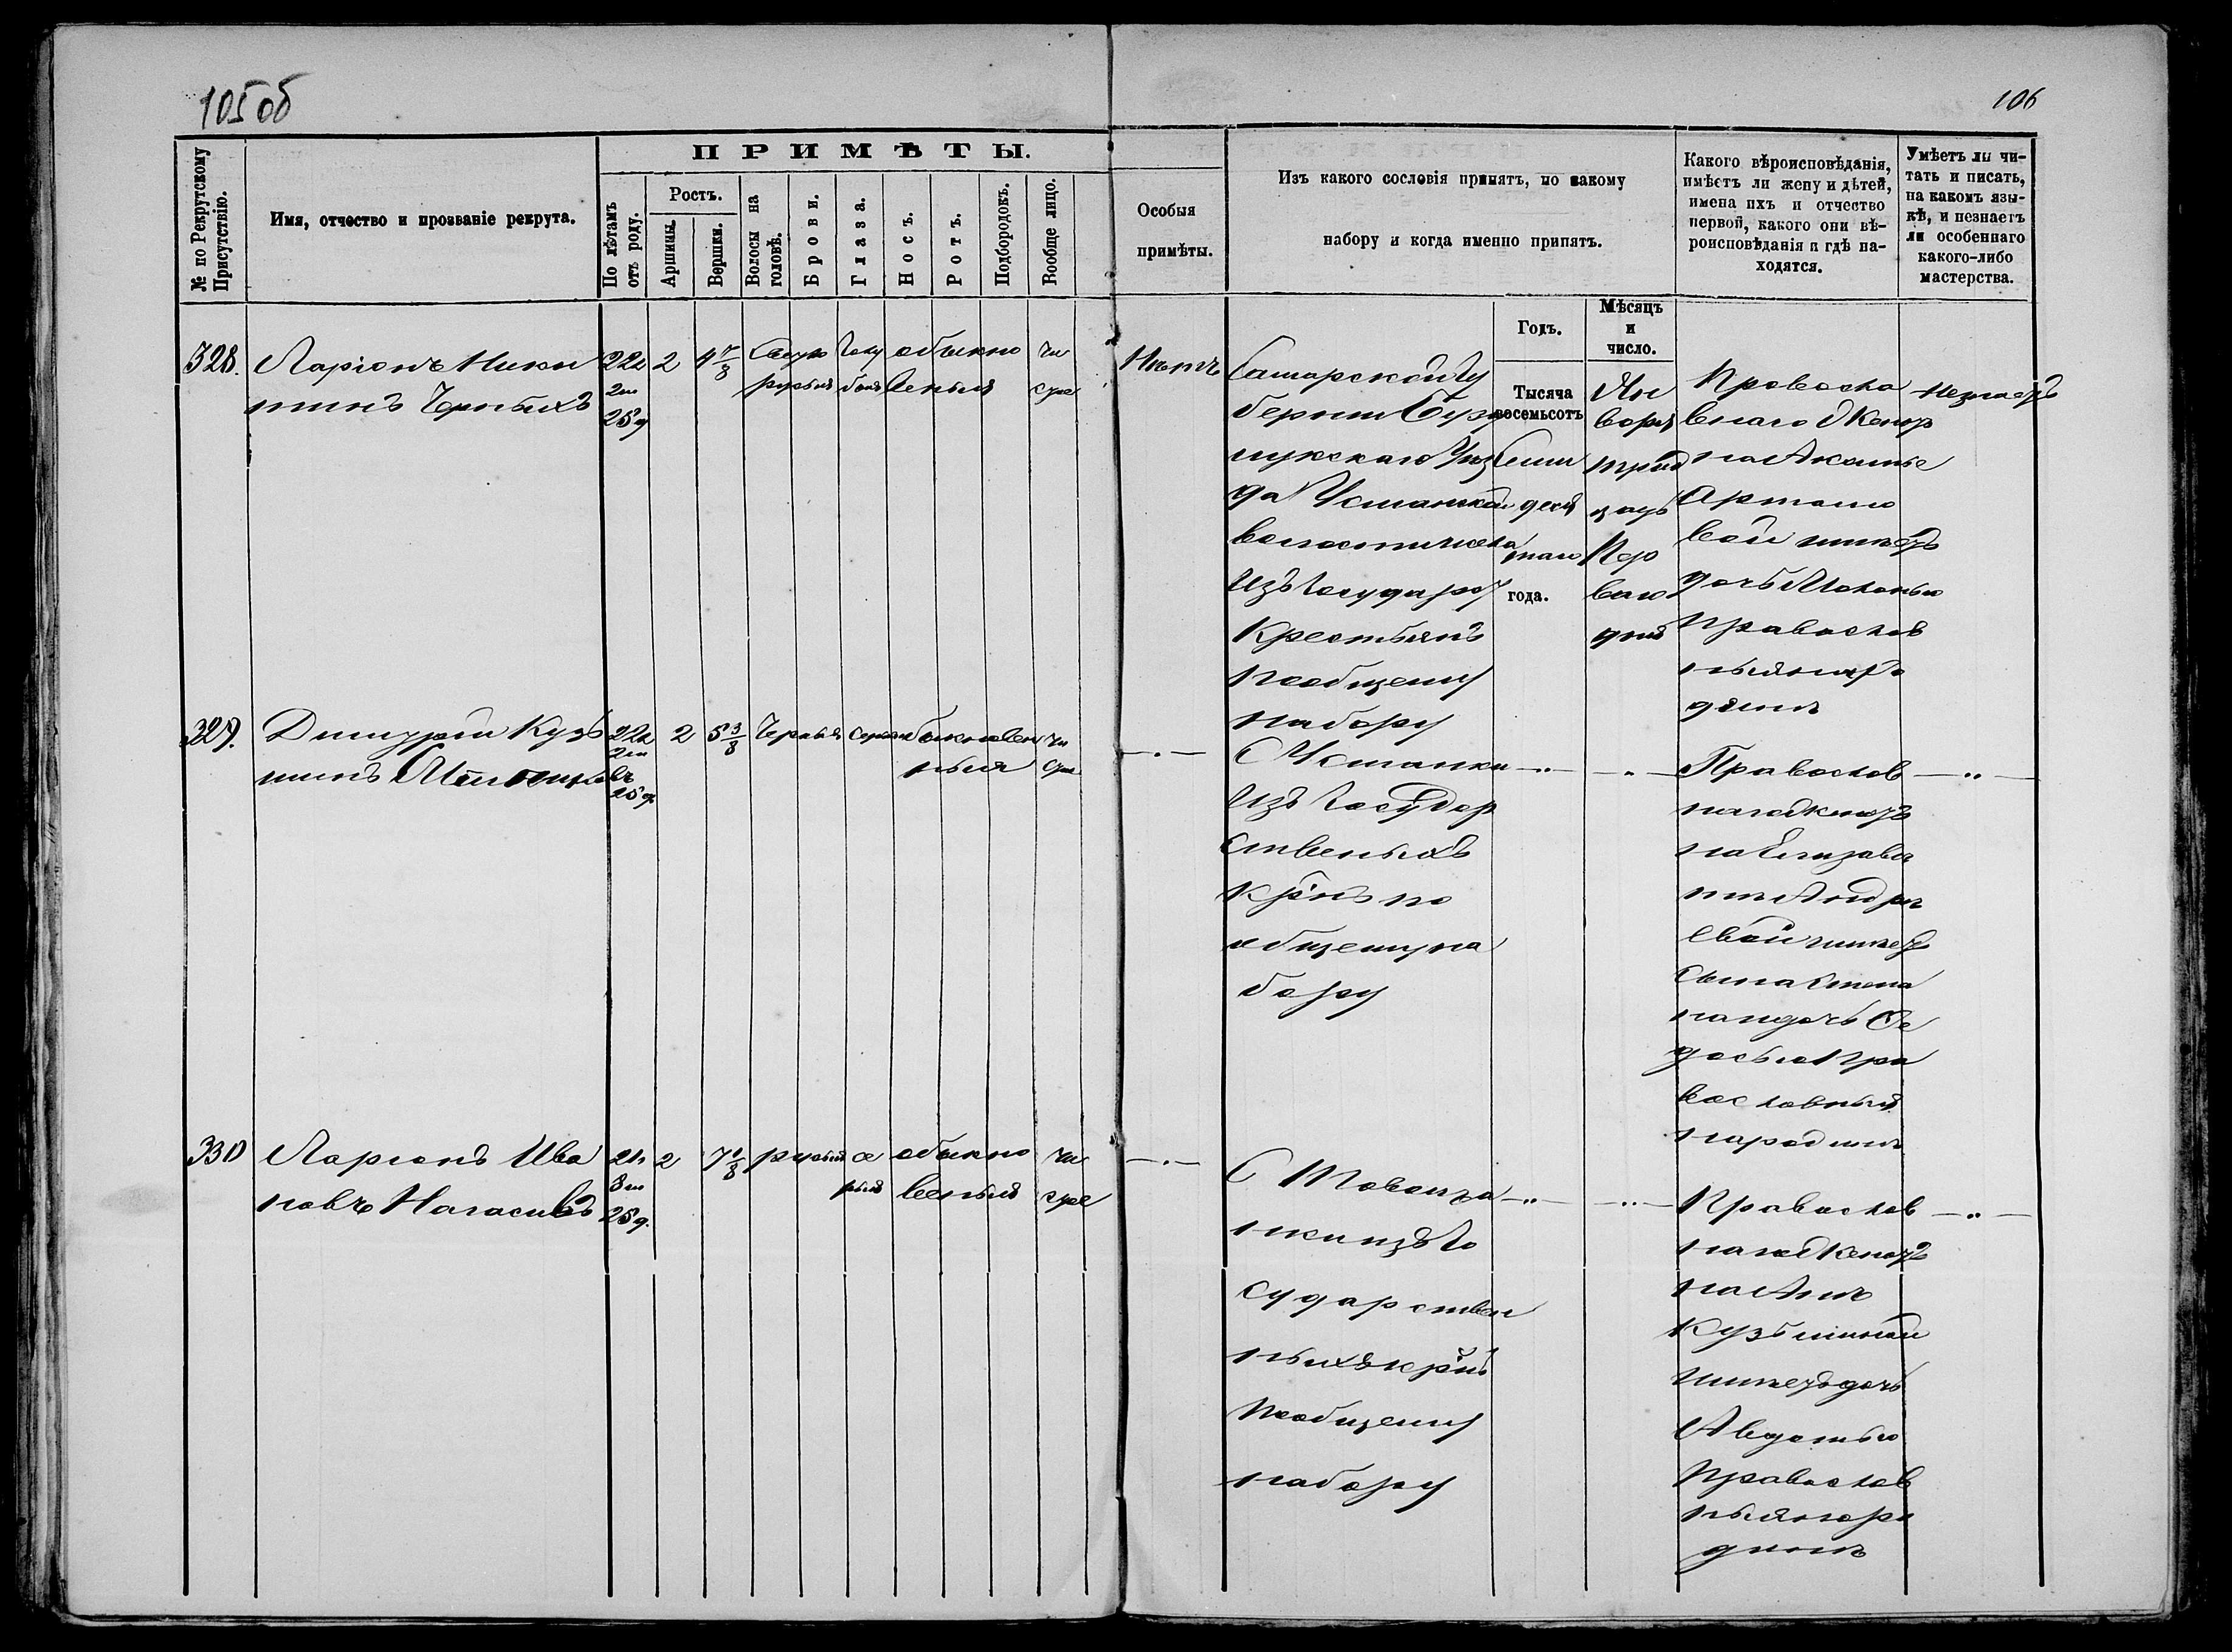 105об
106
№ по Рекрутскому Присутствію.
Имя, отчество и прозваніе рекрута.
ПРИМѢТЫ.
По лѣтамъ отъ роду.
Ростъ.
Аршины.
Вершки.
Волосы на головѣ.
Брови.
Глаза.
Носъ.
Ротъ.
Подбородокъ.
Вообще лицо.
Особыя
примѣты.
Изъ какого сословія принятъ, по какому
набору и когда именно принятъ.
Годъ.
Мѣсяцъ
и
число.
Какого вѣроисповѣданія,
имѣетъ ли жену и дѣтей,
имена ихъ и отчество
первой, какого они вѣ-
роисповѣданія и гдѣ на-
ходятся.
Умѣетъ ли чи-
тать и писать,
на какомъ язы-
кѣ, и незнаетъ
ли особеннаго
какого-либо
мастерства.
328.
Ларіонъ Ники
тинъ Черныхъ
22л
2м
25д
2
4 7/8
Свѣтло
русыя
Голу
бые
обыкно
веныя
чи
стое
Нѣтъ
Самарской Гу
берніи Бузу
лукскаго Уѣз
да
волости села
Изъ Государ
Крестьянъ
пообщему
набору
Тысяча
восемьсотъ
Семи
деся
таго
года.
Ян
варя
трид
цать
Пер
ваго
дня
Правосла
внаго Женат
на Акулинѣ
Артамо
вой имѣетъ
дочь Меланью
православ
ныя на Ро
динѣ
незнаетъ
329.
Дмитрій Кузь
минъ
22л
2м
25д
2
5 3/8
Черныя
Серые
обыкновен
ныя
чи
стое
—·—
С
Изъ Государ
ственыхъ
крнъ по
общему на
бору
—„—
—„—
Православ
наго женатъ
на Елизаве
тѣ Андре
евой имѣет
сына Степа
на и дочь Фе
досью Пра
вославныя
на родинѣ
—„—
330
Ларіонъ Ива
новъ
21л
8м
25д.
2
7 1/8
русыя
се
рыя
обыкно
веныя
чи
стое
—·—
С
изъ Го
сударствен
ныхъ крнъ
Пообщему
набору
—„—
—„—
Православ
наго Женатъ
на Аннѣ
Кузьминой
имѣетъ дочь
Авдотью
Православ
ныя наро
динѣ
—„—